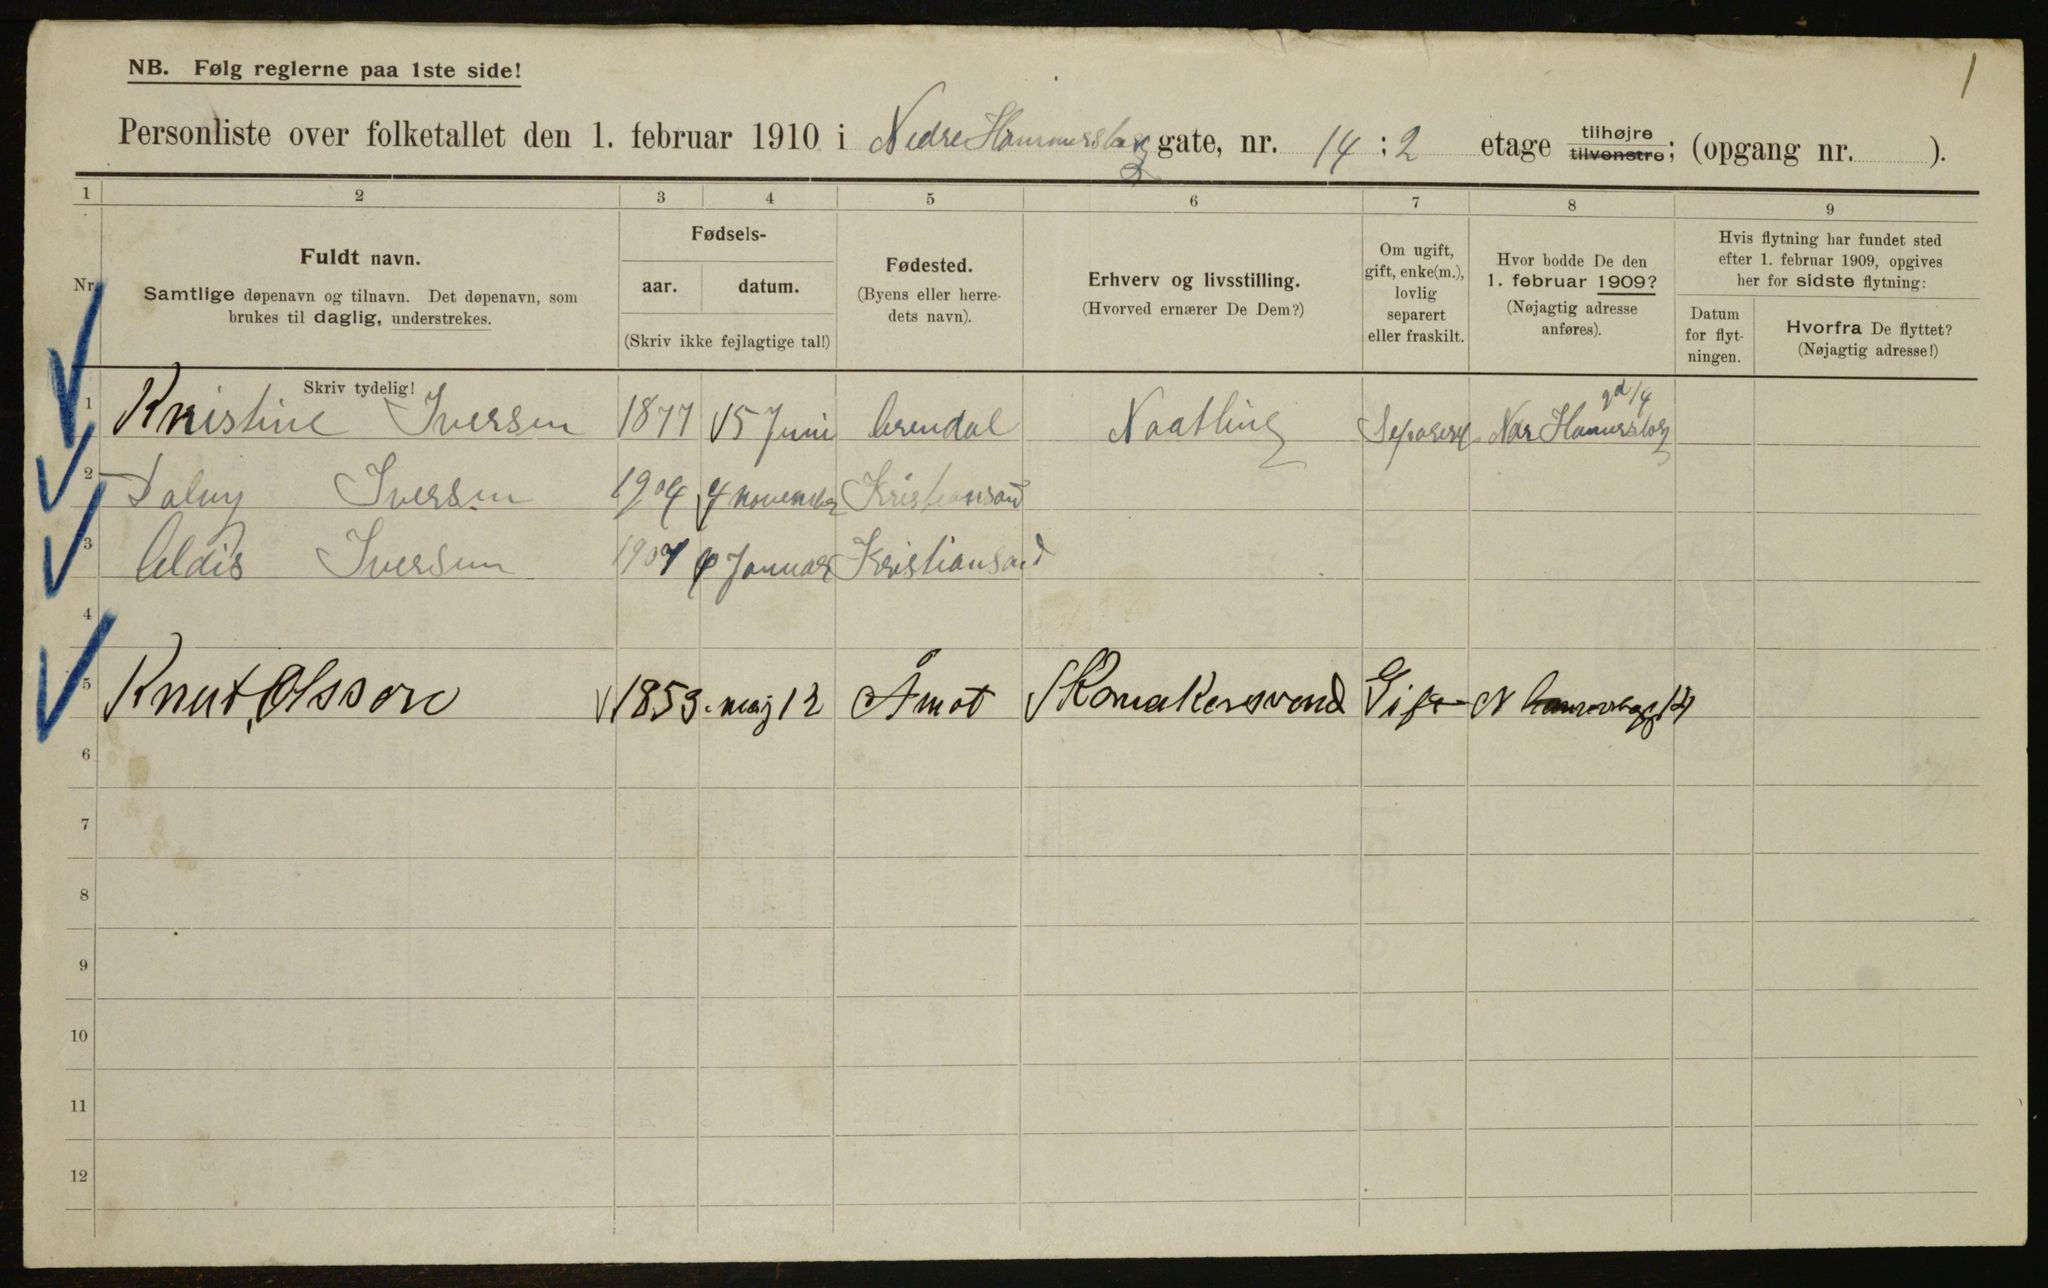 1
NB. Følg reglerne paa 1ste side!
Personliste over folketallet den 1. februar 1910 i Nedre Hammersborg gate, nr. 14 : 2 etage tilhøjre tilvenstre; (opgang nr. ).
1 2 3 4 5 6 7 8 9
Nr.
Fuldt navn.
Samtlige døpenavn og tilnavn. Det døpenavn, som
brukes til daglig, understrekes.
Skriv tydelig!
Fødsels-
aar. datum.
(Skriv ikke fejlagtige tal!)
Fødested.
(Byens eller herre-
dets navn).
Erhverv og livsstilling.
(Hvorved ernærer De Dem?)
Om ugift,
gift, enke(m.),
lovlig
separert
eller fraskilt.
Hvor bodde De den
1. februar 1909?
(Nøjagtig adresse
anføres).
Hvis flytning har fundet sted
efter 1. februar 1909, opgives
her for sidste flytning:
Datum
for flyt-
ningen.
Hvorfra De flyttet?
(Nøjagtig adresse!)
1 Kristine Iversen 1877 15 Juni Arendal Naatling Separert Nor Hamersborg gd 14
2 Dalny Iversen 1904 4 november Kristiansand
3 Aldis Iversen 1907 Januar Kristiansand
4
5 Knut, Olsson 1853. maj 12 Åmot Skomakersvend Gift N 14
6
7
8
9
10
11
12